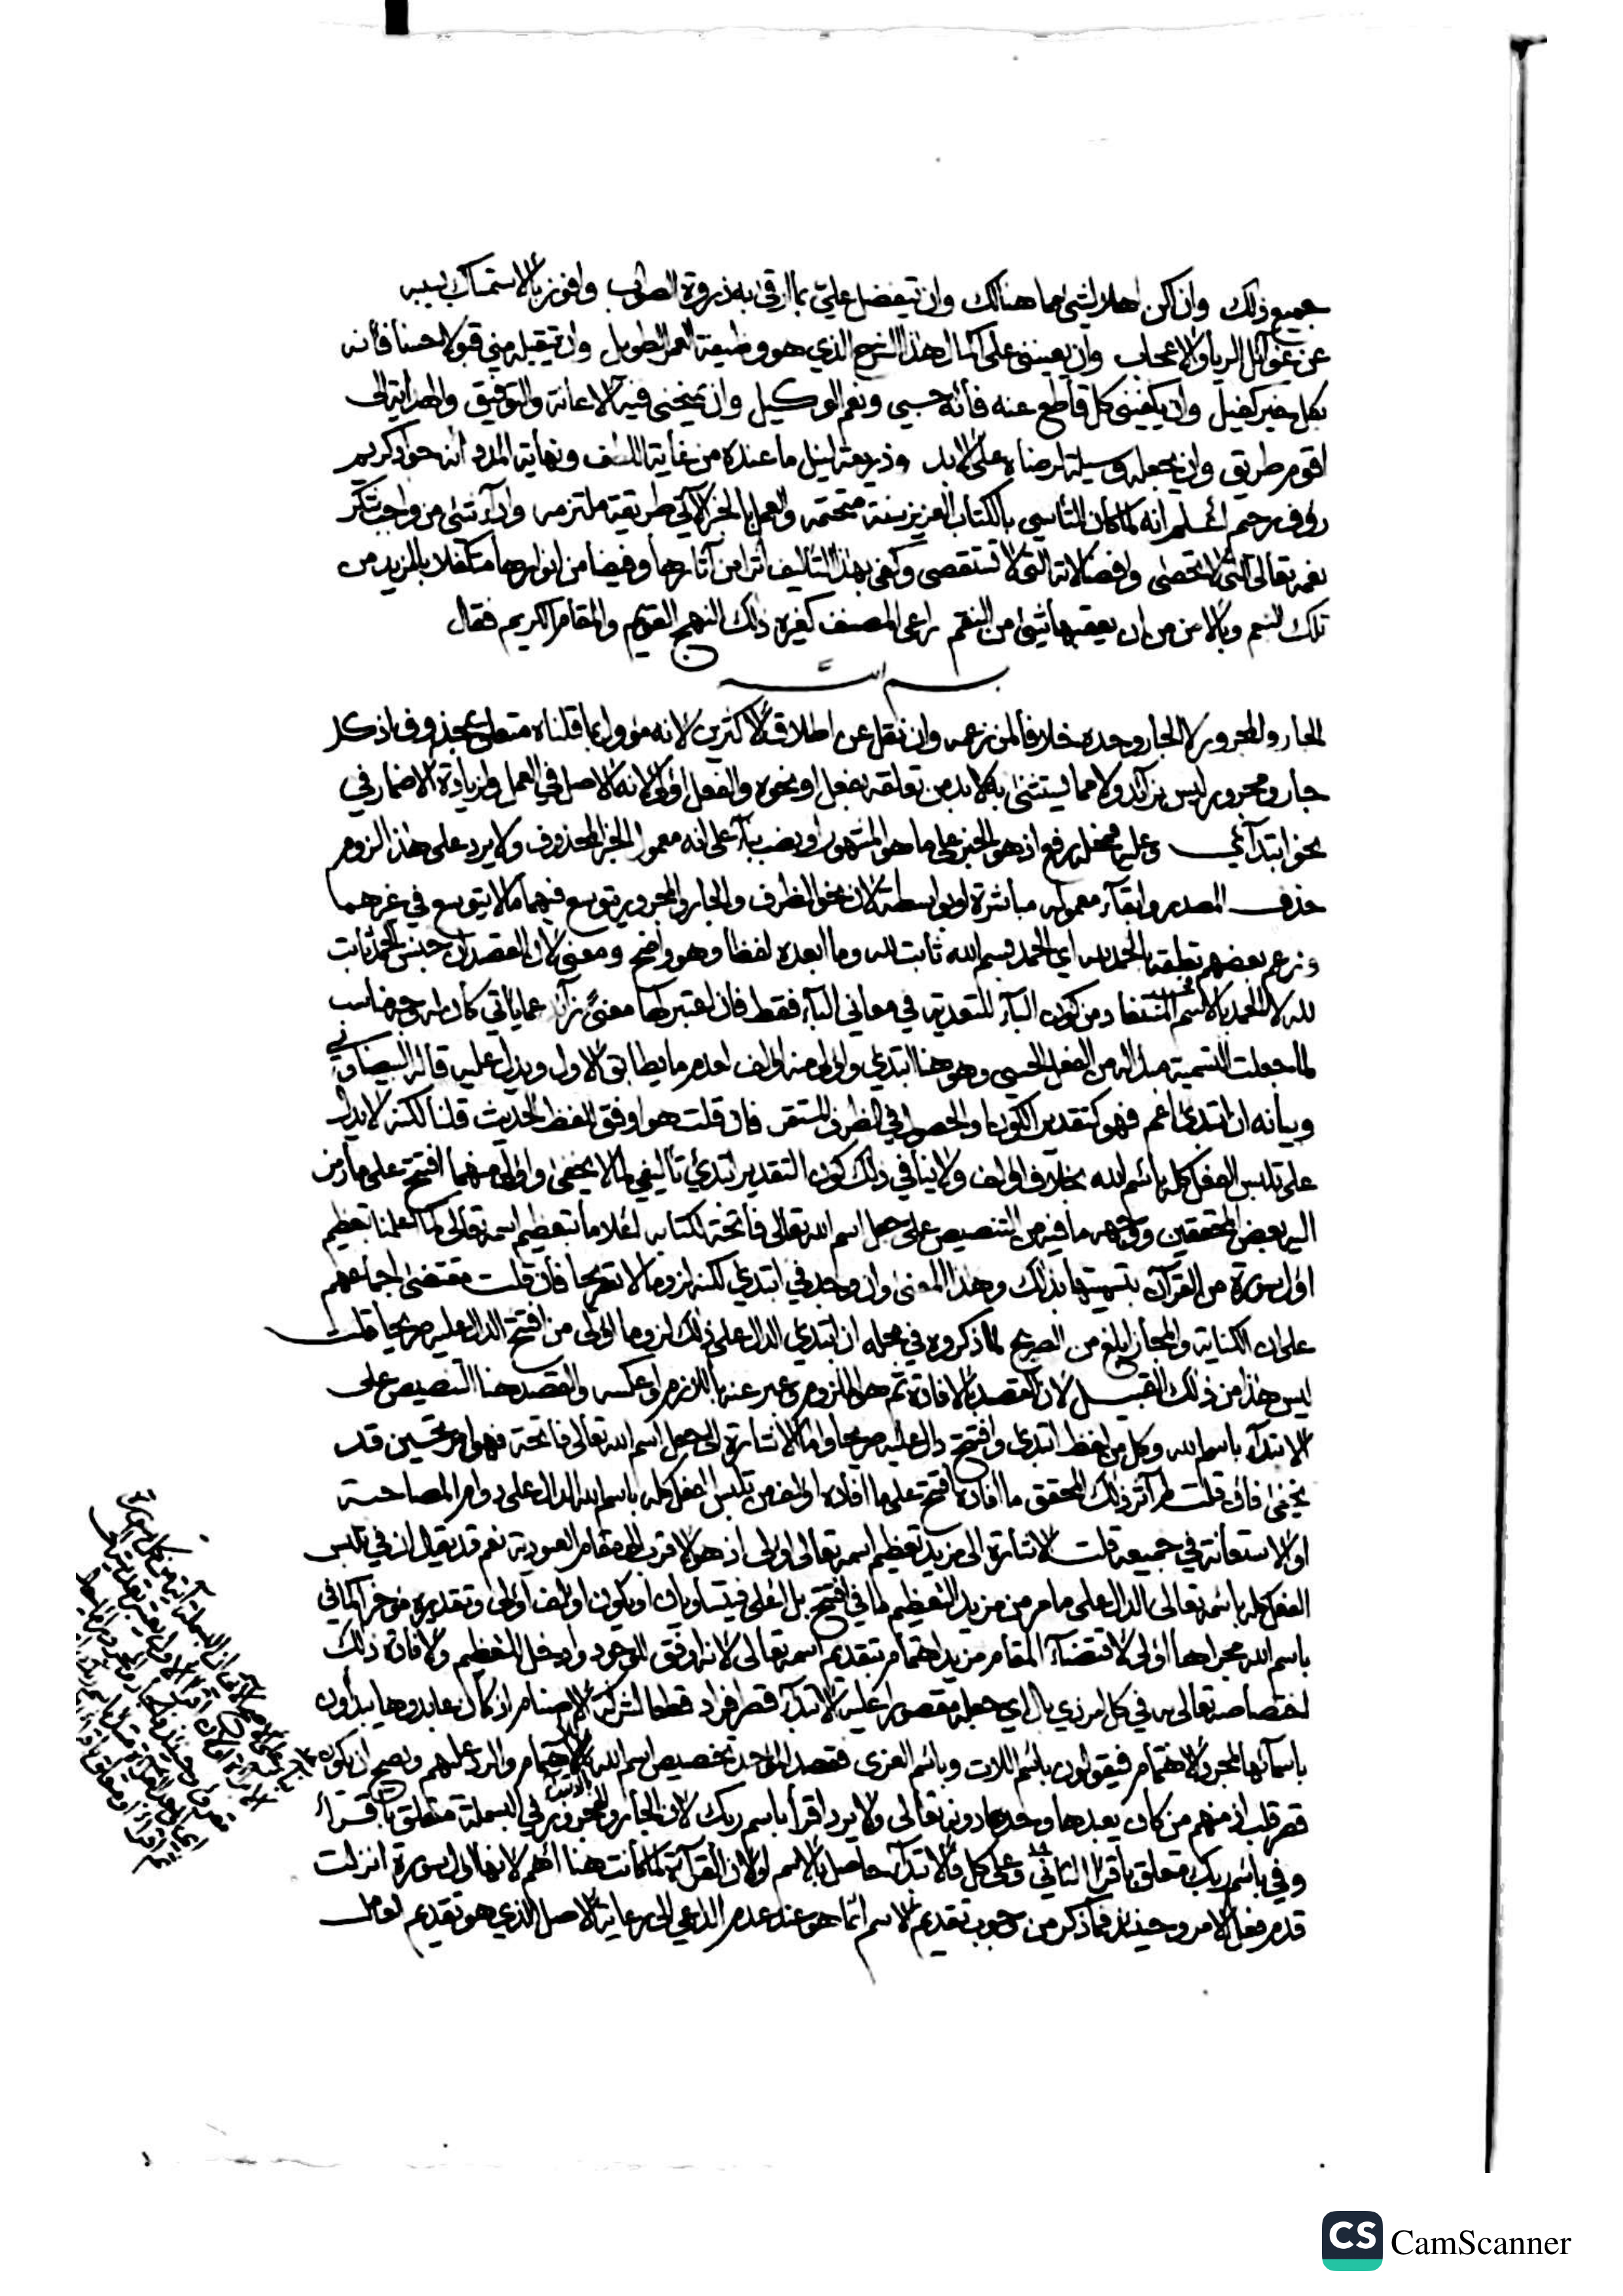 جميع ذلك وان لم اكن اهلا لشئ مما هنالك وان يتفضل علي بما ارقى به ذروة الصواب وافوز بالاستمساك بسببه
عن غوائل الريا والاعجاب وان يعينني على اكمال هذا الشرح الذي هو وظيفة العمر الطويل وان يتقبله مني قبولا حسنا فأنه
بكل خير كفيل وان يكفيني كل قاطع عنه فأنه حسبي ونعم الوكيل وان يمنحني فيه الاعانة والتوفيق والهداية الى
اقوم طريق وان يجعله وسيلة لرضاه على الابد وذريعة لنيل ما عنده من غاية اللطف ونهاية المدد انه جواد كريم
رؤف رحيم اعلم انه لما كان التأسي بالكتاب العزيز سنة متحتمة والعمل بالخبر الآتي طريقة ملتزمه واداء شئ من واجب شكر
نعمه تعالى التي لا تحصى وافضالاته التي لا تستقصى وكفى بهذا التأليف اثرا من آثارها وفيضا من انوارها متكفلا بالمزيد من
تلك النعم وبالامن من ان يعقبها شئ من النقم راعى المصنف كغيره ذلك النهج القويم والمقام الكريم فقال
بسم الله
الجار والمجرور لا الجار وحده خلافا لمن زعمه وان نقل عن اطلاق الاكثرين لانه مؤول بما قلناه متعلق بمحذوف اذ كل
جار ومجرور ليس بزائد ولا مما يستثنى به لا بد من تعلقه بفعل او نحوه والفعل اولى لانه الاصل في العمل ولزيادة الاضمار في
نحو ابتدائي وعليه فمحله رفع اذ هو الخبر على ما هو المشهور او نصب بناء على انه معمول الخبر المحذوف ولا يرد على هذا لزوم
حذف المصدر وابقاء معموله مباشرة او بواسطة لان نحو الظرف والجار والمجرور يتوسع فيهما ما لا يتوسع في غيرهما
وزعم بعضهم تعلقه بالحمد لله اي الحمد بسم الله ثابت لله وما ابعده لفظا وهو واضح ومعنى لان القصد ان جنس الحمد ثابت
لله لا الحمد بالاسم ومن كون الباء للتعدية في معاني الباء فقط فان اعتبر لها معنى زائد عما يأتي كان له وجه مناسب
لما جعلت التسمية مبدأ له من الفعل الحسي وهو هنا ابتدئ واولى منه اولف لعدم ما يطابق الاول ويدل عليه قاله البيضاوي
وبيانه ان ابتدئ اعم فهو كتقدير الكون او الحصول في الظرف المستقر فان قلت هو اوفق للفظ الحديث قلنا لكنه لا يدل
على تلبس الفعل كله باسم الله بخلاف اولف ولا ينافي ذلك كون التقدير ابتدئ تأليفي كما لا يخفى واولى منهما افتتح على ما ركن
اليه بعض المحققين ووجهه ما فيه من التنصيص على جعل اسم الله تعالى فاتحة لكتابه اعلاما بتعظيم اسمه تعالى كما اعلمنا بتعظيم
اول سورة من القرآن بتسميتها بذلك وهذا المعنى وان وجد في ابتدئ لكنه لزوما لا تصريحا فان قلت مقتضى اجماعهم
على ان الكناية والمجاز ابلغ من الصريح لما ذكروه في محله ان ابتدئ الدال على ذلك لزوما اولى من افتتح الدال عليه صريحا قلت
ليس هذا من ذلك القبيل لان القصد بالافادة ثم هو الملزوم وعبر عنه باللازم او عكسه والقصد هنا التنصيص على
الابتداء باسم الله وكل من لفظ ابتدئ وافتتح دال عليه صريحا واما الاشارة الى جعل اسم الله تعالى فاتحة فهو امر تحسين قد
يخفى فان قلت لم آثر ذلك المحقق ما افاده افتتح على ما افاده اولف من تلبس الفعل كله باسم الله الدال على دوام المصاحبة
او الاستعانة في جميعه قلت الاشارة الى مزيد تعظيم اسمه تعالى اولى اذ هو الاقرب الى مقام العبودية نعم قد يقال ان في تلبس
الفعل كله باسمه تعالى الدال على ما مر من مزيد التعظيم ما في افتتح بل اعلى فيتساويان او يكون اولف اولى وتقديره مؤخرا كما في
باسم الله مجراها اولى لاقتضاء المقام مزيد اهتمام بتقديم اسمه تعالى لانه اوفق للوجود وادخل للتعظيم ولافادة ذلك
اختصاصه تعالى به في كل امر ذي بال اي جعله مقصورا عليه الابتداء قصر افراد قطعا لشركة الاصنام اذ كان عابدوها يبدأون
باسمائها لمجرد الاهتمام فيقولون باسم اللات وباسم العزى فقصد الموحد تخصيص اسم الله بالاهتمام والرد عليهم ويصح ان يكون
قصر قلب اذ منهم من كان يعبدها وحدها دونه تعالى ولا يرد اقرأ باسم ربك لان الجار والمجرور في البسملة متعلق باقرأ
وفي باسم ربك متعلق باقرأ الثاني وعلى كل فالابتداء حاصل بالاسم او لان القراءة لما كانت هنا اهم لانها اول سورة انزلت
قدم فعل الامر وحينئذ فما ذكر من وجوب تقديم الاسم انما هو عند عدم الداعي الى رعاية الاصل الذي هو تقديم العامل
CS CamScanner